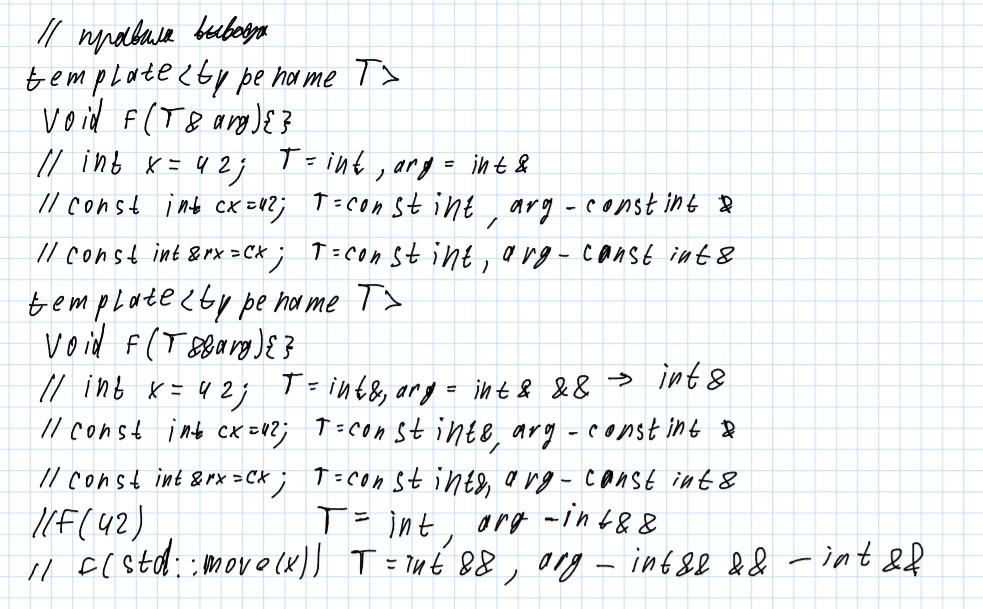 // правила вывода
template<typename T>
void F(T& arg){}
// int x = 42; T = int, arg = int &
// const int cx=42; T = const int, arg - const int &
// const int &rx=cx; T = const int, arg - const int &
template<typename T>
void F(T &&arg){}
// int x = 42; T = int&, arg = int & && → int &
// const int cx=42; T = const int&, arg - const int &
// const int &rx=cx; T = const int&, arg - const int &
//F(42) T = int, arg - int &&
// F(std::move(x)) T = int &&, arg - int && && - int &&